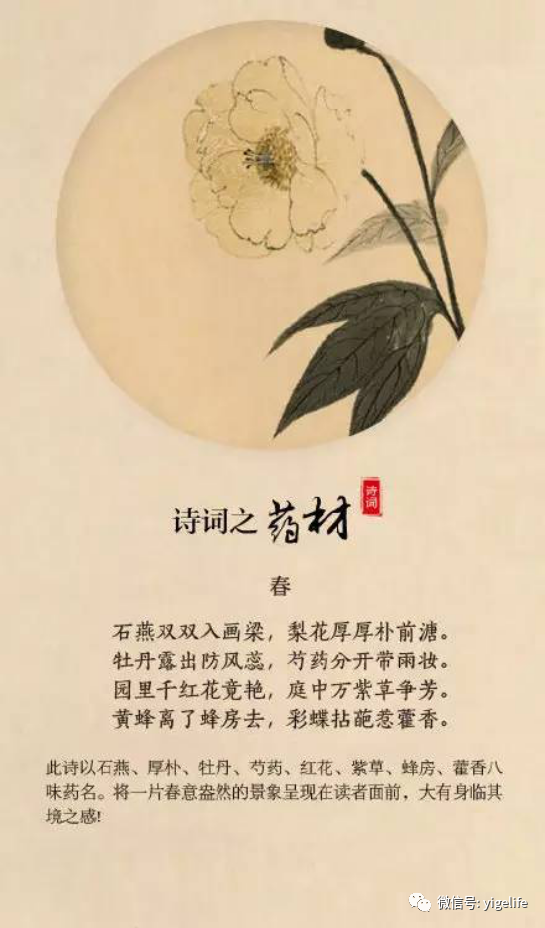 诗词之药材
诗词
春
石燕双双入画梁，梨花厚厚朴前溏。
牡丹露出防风蕊，芍药分开带雨妆。
园里千红花竟艳，庭中万紫草争芳。
黄蜂离了蜂房去，彩蝶拈葩惹藿香。
此诗以石燕、厚朴、牡丹、芍药、红花、紫草、蜂房、藿香八
味药名。将一片春意盎然的景象呈现在读者面前，大有身临其
境之感!
微信号: yigelife